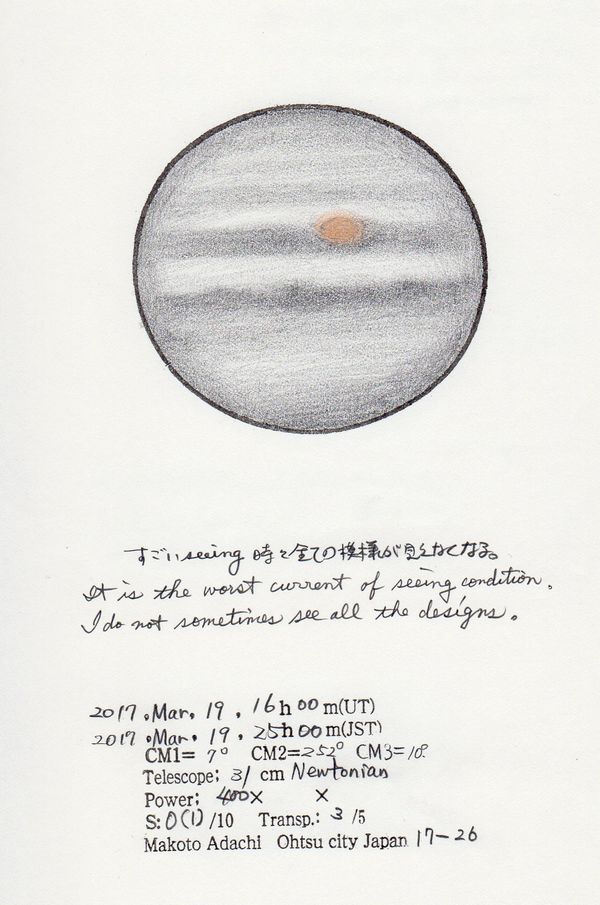 すごいseeing 時々全ての模様が見えなくなる。
It is the worst current of seeing condition.
I do not sometimes see all the designs.
2017.Mar. 19. 16h00m(UT)
2017.Mar. 19. 25h00m(JST)
CM1= 7° CM2=252° CM3=10°
Telescope; 31 cm Newtonian
Power; 400× ×
S: 0(1)/10 Transp.: 3/5
Makoto Adachi Ohtsu city Japan 17-26